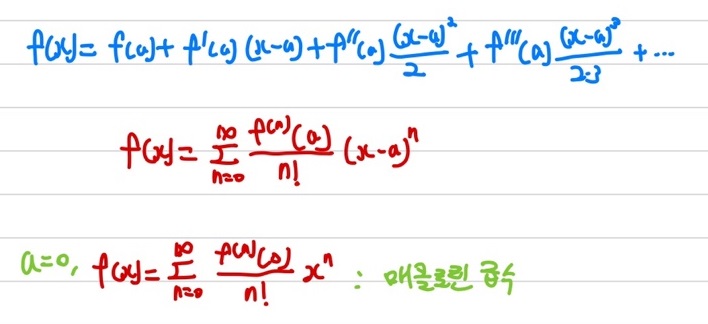 f(x) = f(a) + f'(a) (x-a) + f''(a) (x-a)²/2 + f'''(a) (x-a)³/2·3 + ...
f(x) = ∑_{n=0}^{∞} f⁽ⁿ⁾(a)/n! (x-a)ⁿ
a=0, f(x) = ∑_{n=0}^{∞} f⁽ⁿ⁾(0)/n! xⁿ : 매클로린 급수